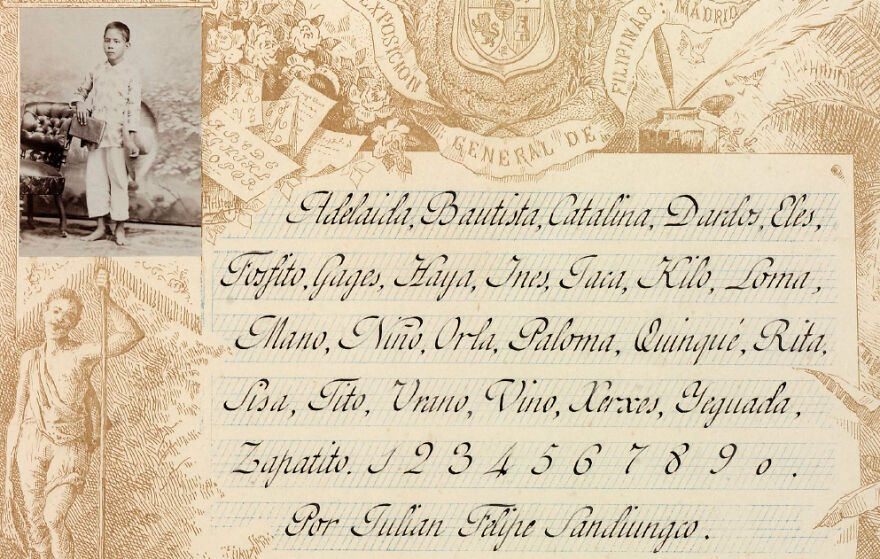 EXPOSICION
GENERAL DE
FILIPINAS: MADRID
Adelaida, Bautista, Catalina, Dardos, Eles,
Fosfito, Gages, Haya, Ines, Jaca, Kilo, Loma,
Mano, Niño, Orla, Paloma, Quinqué, Rita,
Sisa, Tito, Urano, Vino, Xerxes, Yeguada,
Zapatito. 1 2 3 4 5 6 7 8 9 0 .
Por Julian Felipe Sandiungco.